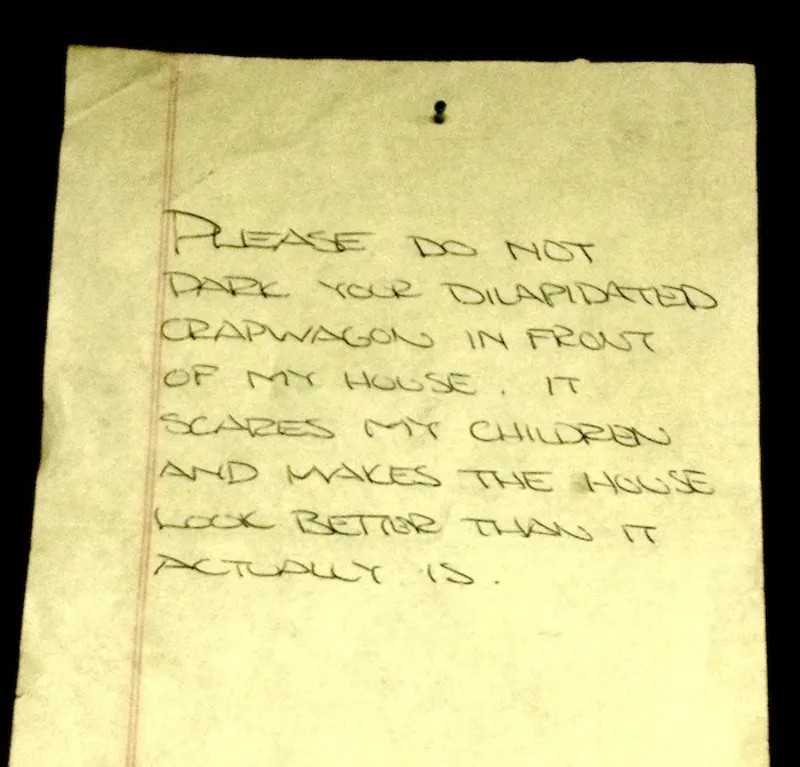 PLEASE DO NOT
PARK YOUR DILAPIDATED
CRAPWAGON IN FRONT
OF MY HOUSE. IT
SCARES MY CHILDREN
AND MAKES THE HOUSE
LOOK BETTER THAN IT
ACTUALLY IS.